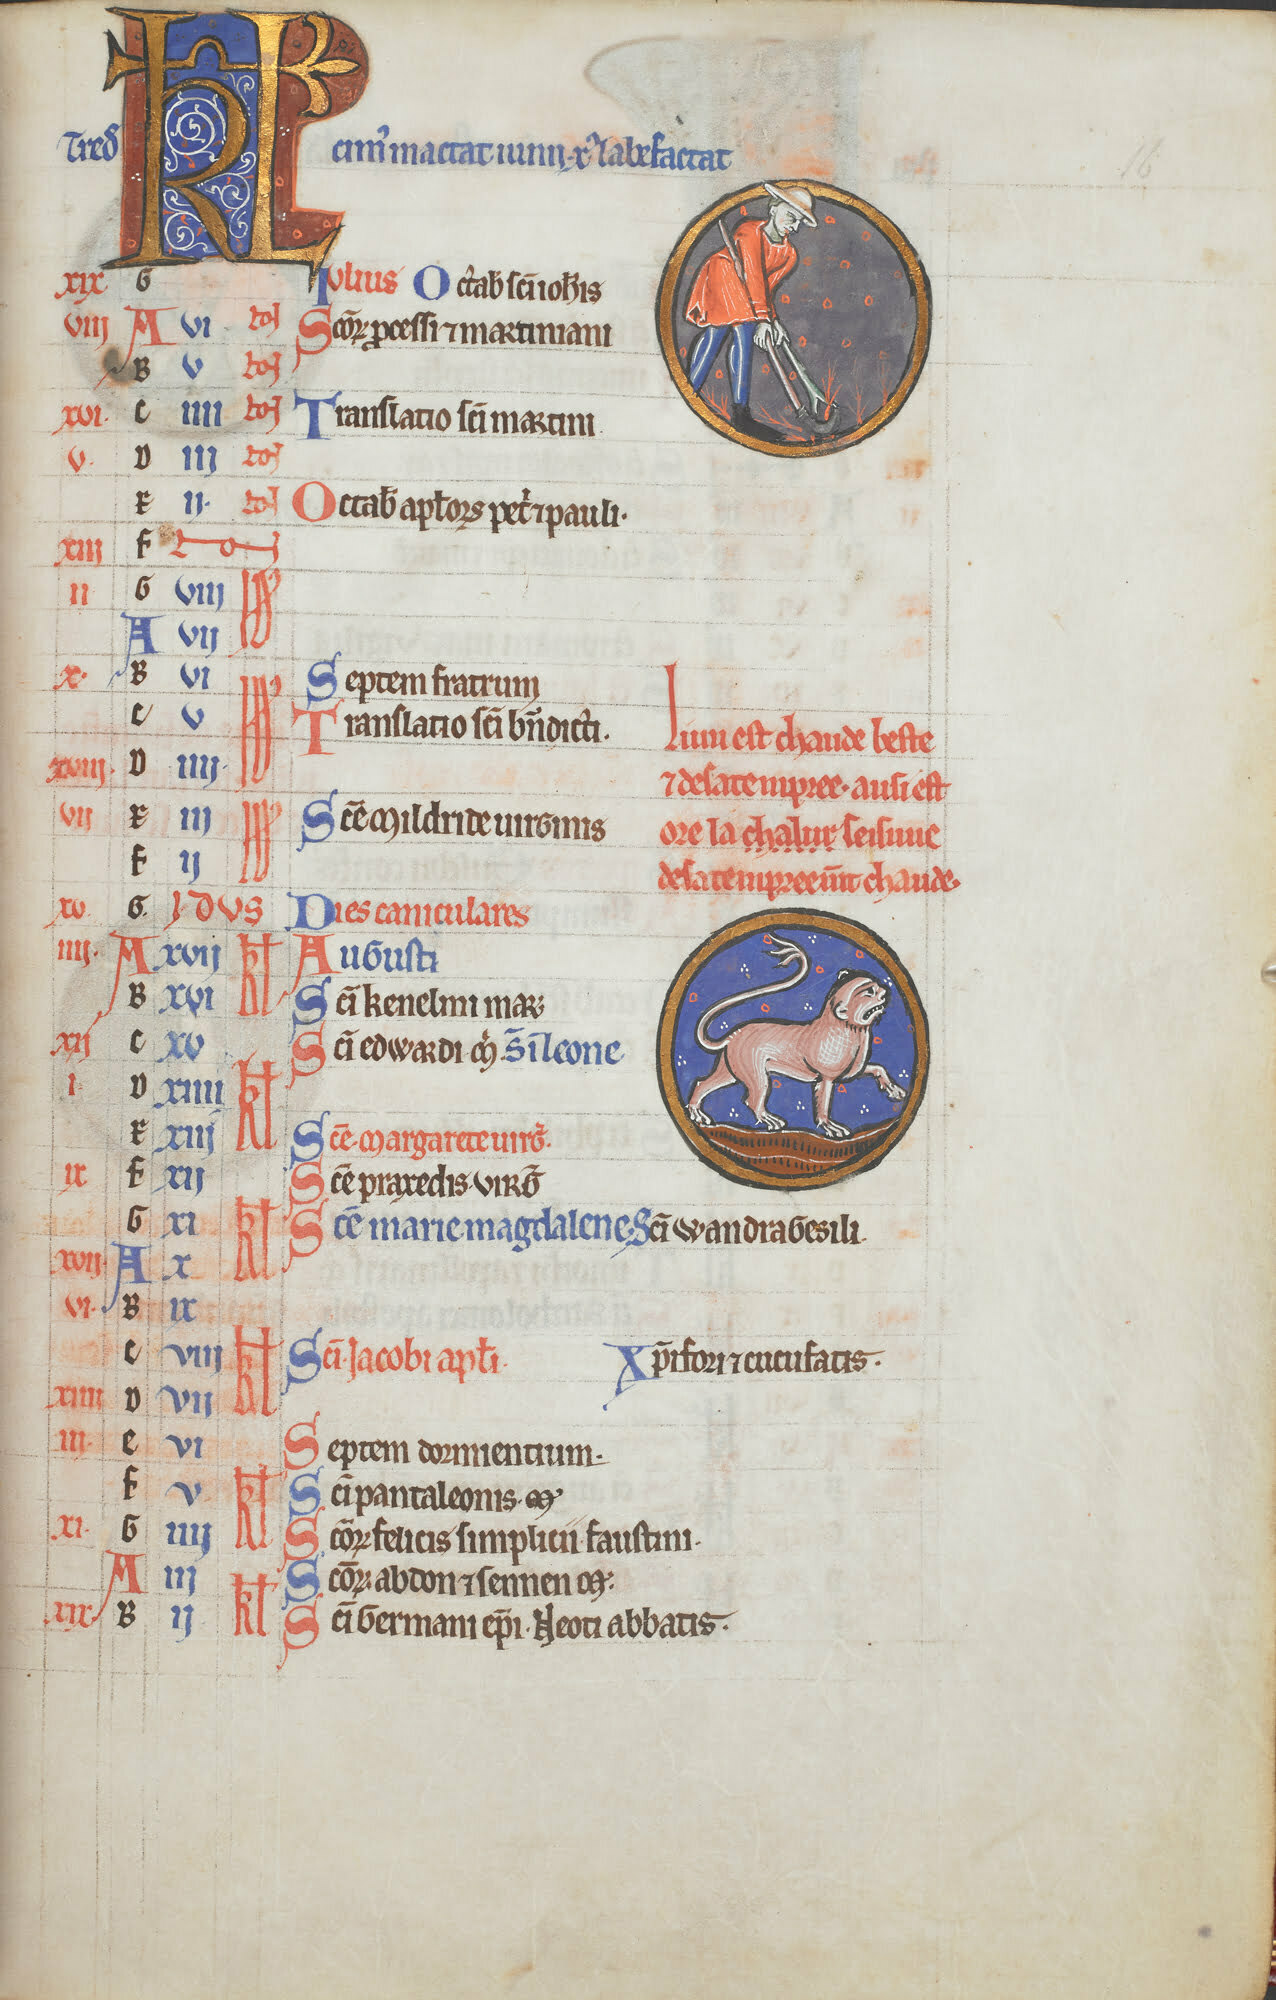 KL
Tredecim' mactat iulii · x' labefactat
16
xix G Iulius Octab sci iohis
viii A vi No Scor pcessi ⁊ martiniani
B v No
xvi· C iiii No Translatio sci martini
v· D iii No
E ii· No Octab aplors pet' ⁊ pauli·
xiii F No
ii G viii Id
A vii
x· B vi Id Septem fratrum
C v Translatio sci bndicti·
xviii· D iiii·
vii E iii Id Sce Mildride uirginis
F ii
xv G· Idus Dies caniculares
iiii· A xvii kl Augusti
B xvi Sci kenelmi mar
xii C xv Sci edwardi · m' S' leone
i· D xiiii kl
E xiii Sce· Margarete uirg·
ix F xii Sce praxedis· virg
G xi kl Sce marie magdalene· Sci wandragesili·
xvii· A x
vi· B ix
C viii kl Sci· Jacobi apli· Xpifori ⁊ cucufatis·
xiiii D vii
iii· E vi Septem dormientium·
F v kl Sci pantaleonis· m'
xi· G iiii Scor felicis simplicii faustini·
A iii kl Scor· abdon ⁊ sennen m·
xix B ii Sci Germani epi· Neoti abbatis·
Liun est chaude beste
⁊ desatempree· ausi est
ore la chalur seisune
desatempreemt chaude·